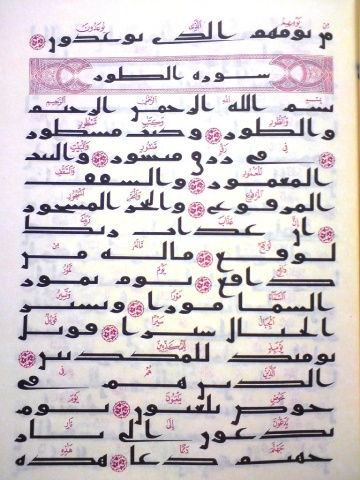 من يومهم الذي يوعدون
سورة الطور
بسم الله الرحمن الرحيم
والطور وكتب مسطور
في رق منشور والبيت
المعمور والسقف
المرفوع والبحر المسجور
إن عذاب ربك
لوقع ما له من
دافع يوم تمور
السما مورا وتسير
الجبال سيرا فويل
يومئذ للمكذبين
الذين هم في
خوض يلعبون يوم
يدعون إلى نار
جهنم دعا هذه